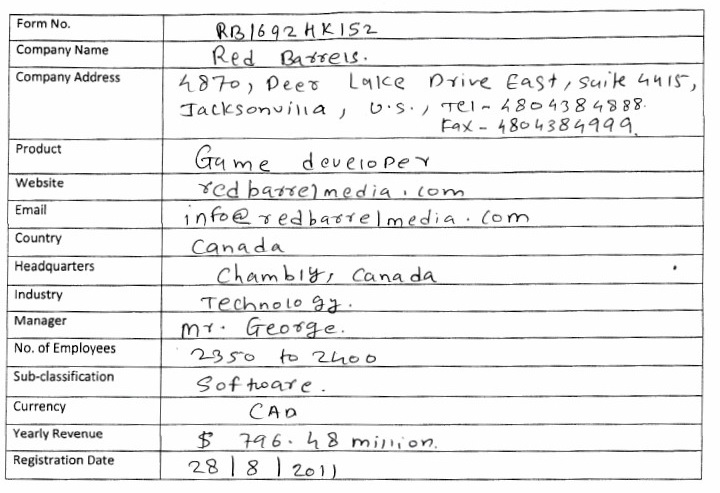 Form No. RB1692HK152
Company Name Red Barrels.
Company Address 4870, Deer Lake Drive East, Suite 4415,
Jacksonvilla, U.S., Tel - 4804384888.
Fax - 4804384999.
Product Game developer
Website redbarrelmedia.com
Email info@redbarrelmedia.com
Country Canada
Headquarters Chambly, Canada
Industry Technology.
Manager Mr. George.
No. of Employees 2350 to 2400
Sub-classification Software.
Currency CAD
Yearly Revenue $ 796.48 million.
Registration Date 28/8/2011